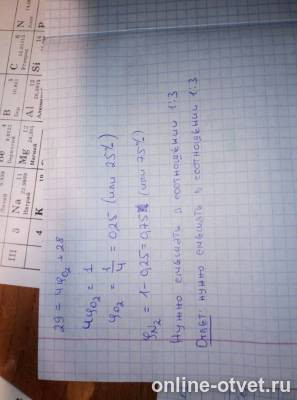 29 = 4φO2 + 28
4φO2 = 1
φO2 = 1/4 = 0,25 (или 25%)
φN2 = 1 - 0,25 = 0,75 (или 75%)
Нужно смешать в соотношении 1:3
Ответ: нужно смешать в соотношении 1:3
III 3 Na Mg Al Si P
Натрий Магний
4 K
B C N
online-otvet.ru